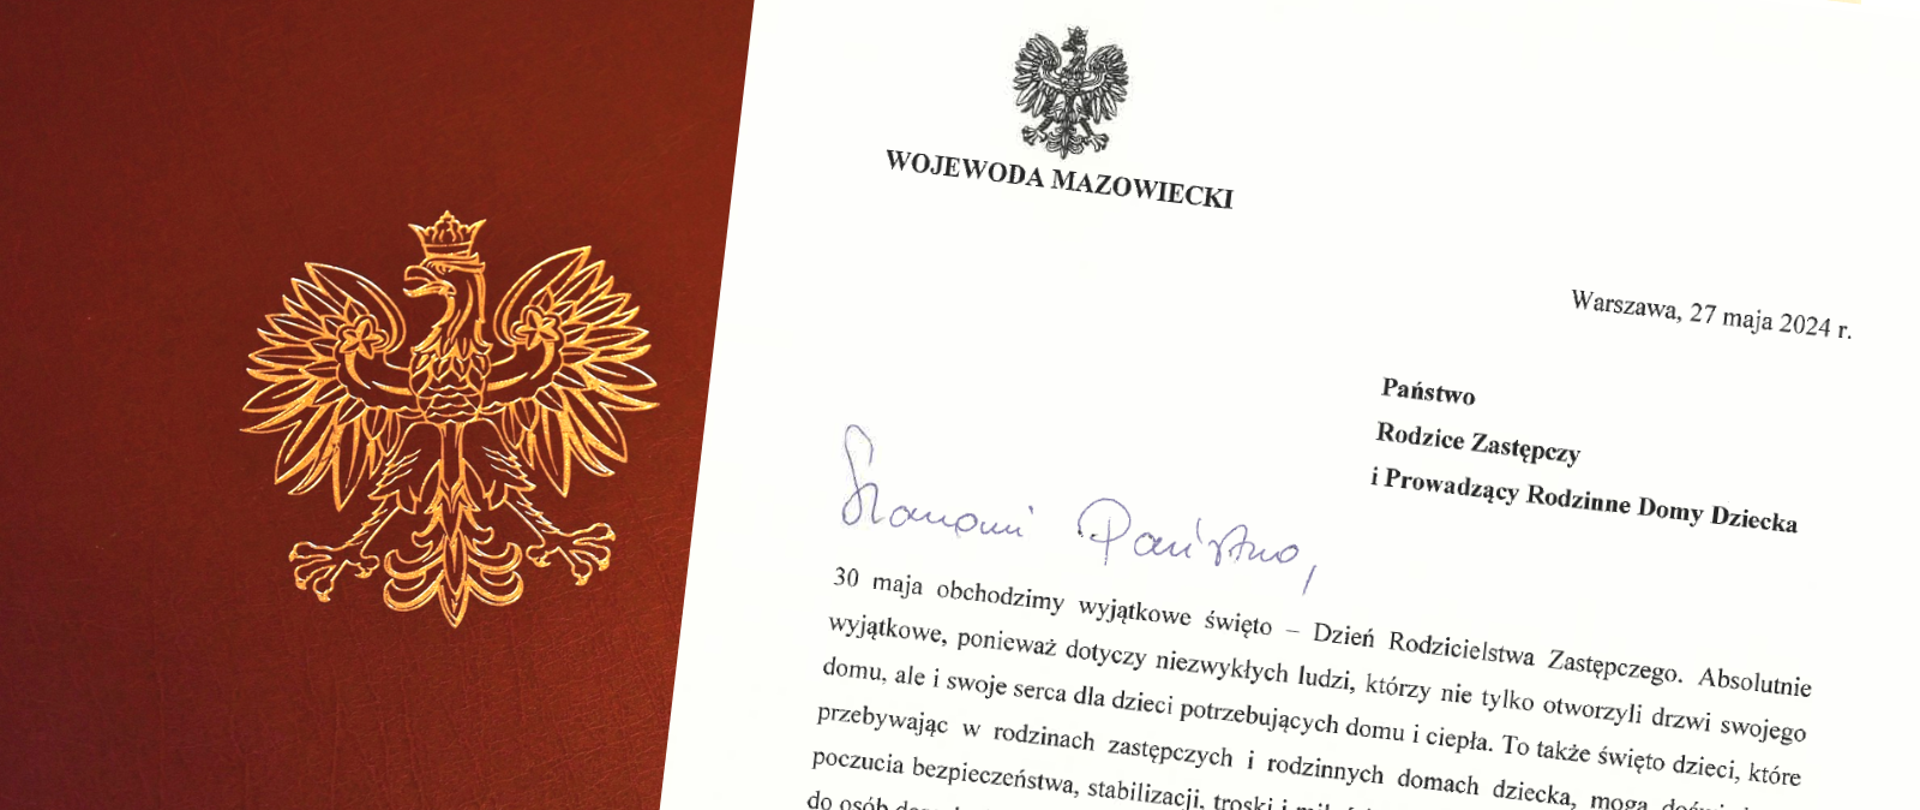 WOJEWODA MAZOWIECKI
Warszawa, 27 maja 2024 r.
Państwo
Rodzice Zastępczy
i Prowadzący Rodzinne Domy Dziecka
Szanowni Państwo,
30 maja obchodzimy wyjątkowe święto – Dzień Rodzicielstwa Zastępczego. Absolutnie
wyjątkowe, ponieważ dotyczy niezwykłych ludzi, którzy nie tylko otworzyli drzwi swojego
domu, ale i swoje serca dla dzieci potrzebujących domu i ciepła. To także święto dzieci, które
przebywając w rodzinach zastępczych i rodzinnych domach dziecka, mogą
poczucia bezpieczeństwa, stabilizacji, troski i
do osób